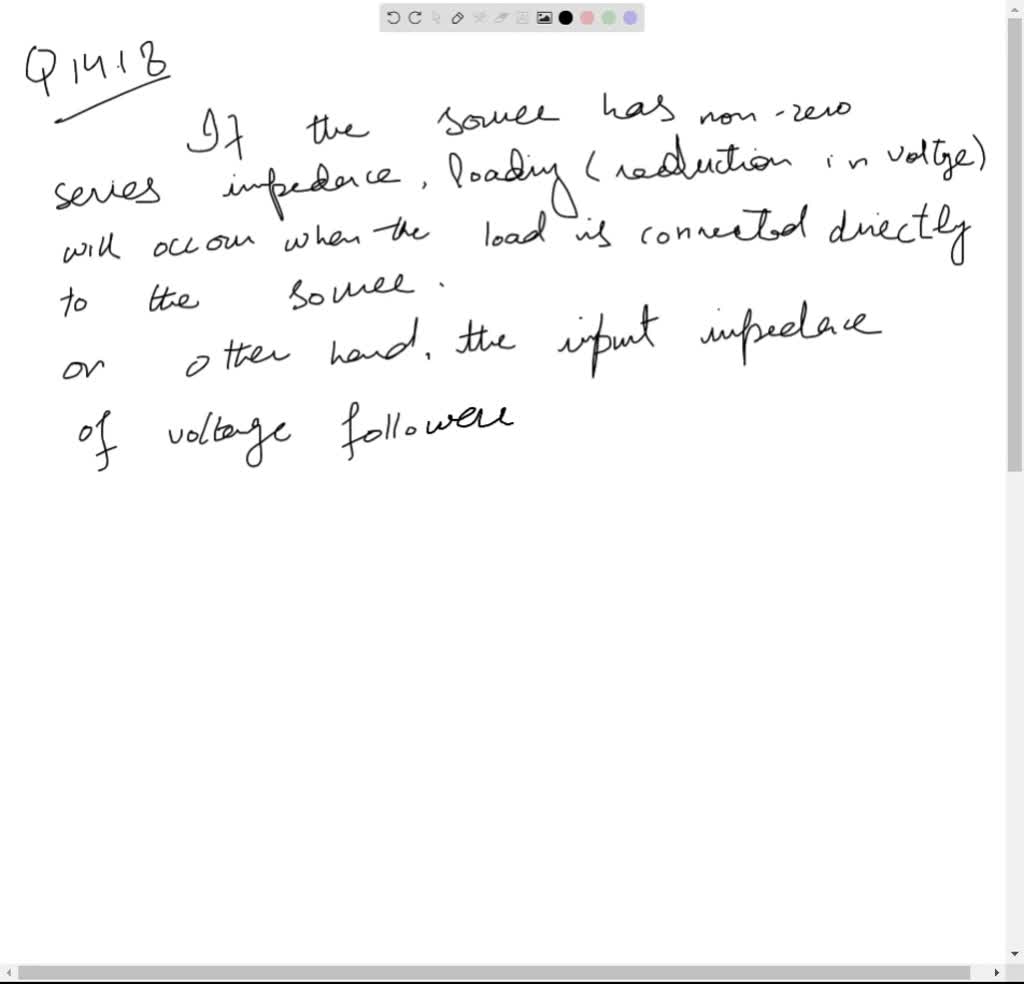 Q 14.18
If the source has non-zero
series impedance, loading (reduction in voltge)
will occour when the load is connected directly
to the source.
on other hand, the input impedace
of voltage follower